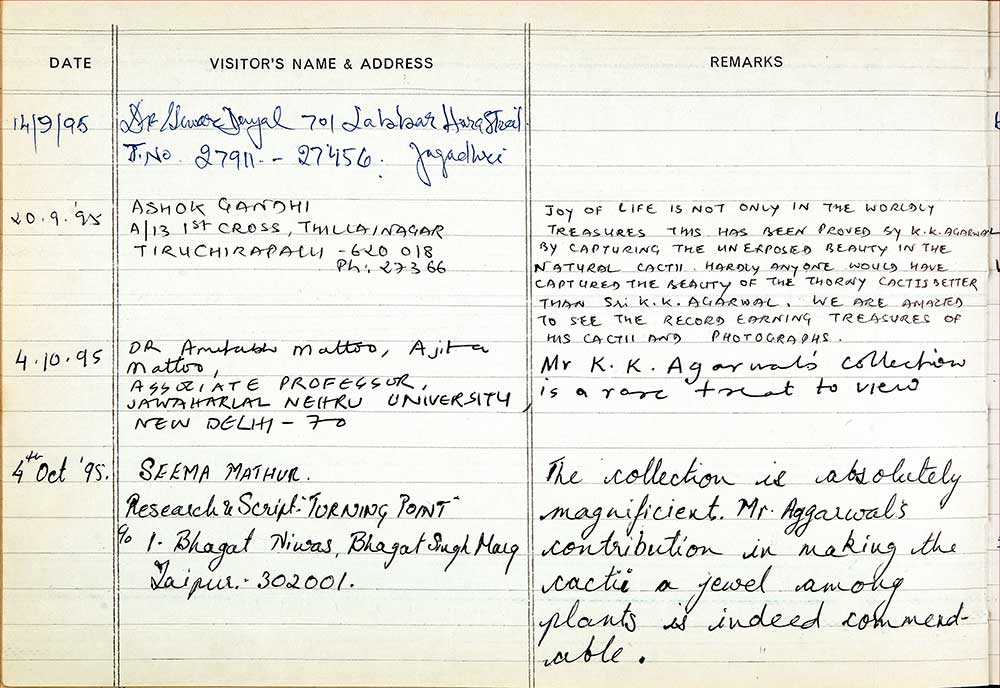 DATE
VISITOR'S NAME & ADDRESS
REMARKS
14/9/95
Dr Dayal 701
T.No. 27911 - 27456. Jagadhri
20.9.'95
ASHOK GANDHI
A/13 1ST CROSS, THILLAINAGAR
TIRUCHIRAPALLI - 620 018
Ph: 27366
JOY OF LIFE IS NOT ONLY IN THE WORLDLY
TREASURES THIS HAS BEEN PROVED BY K.K.AGARWAL
BY CAPTURING THE UNEXPOSED BEAUTY IN THE
NATURAL CACTII. HARDLY ANYONE WOULD HAVE
CAPTURED THE BEAUTY OF THE THORNY CACTIS BETTER
THAN Sri K.K. AGARWAL. WE ARE AMAZED
TO SEE THE RECORD EARNING TREASURES OF
HIS CACTII AND PHOTOGRAPHS.
4.10.95
DR Amitabh Mattoo, Ajita
Mattoo,
ASSOCIATE PROFESSOR,
JAWAHARLAL NEHRU UNIVERSITY,
NEW DELHI - 70
Mr K. K. Agarwal's collection
is a rare treat to view
4th Oct '95.
SEEMA MATHUR.
Research & Script - "TURNING POINT"
c/o 1. Bhagat Niwas, Bhagat Singh Marg
Jaipur - 302001.
The collection is absolutely
magnificient. Mr. Aggarwal's
contribution in making the
cactii a jewel among
plants is indeed commend-
able.